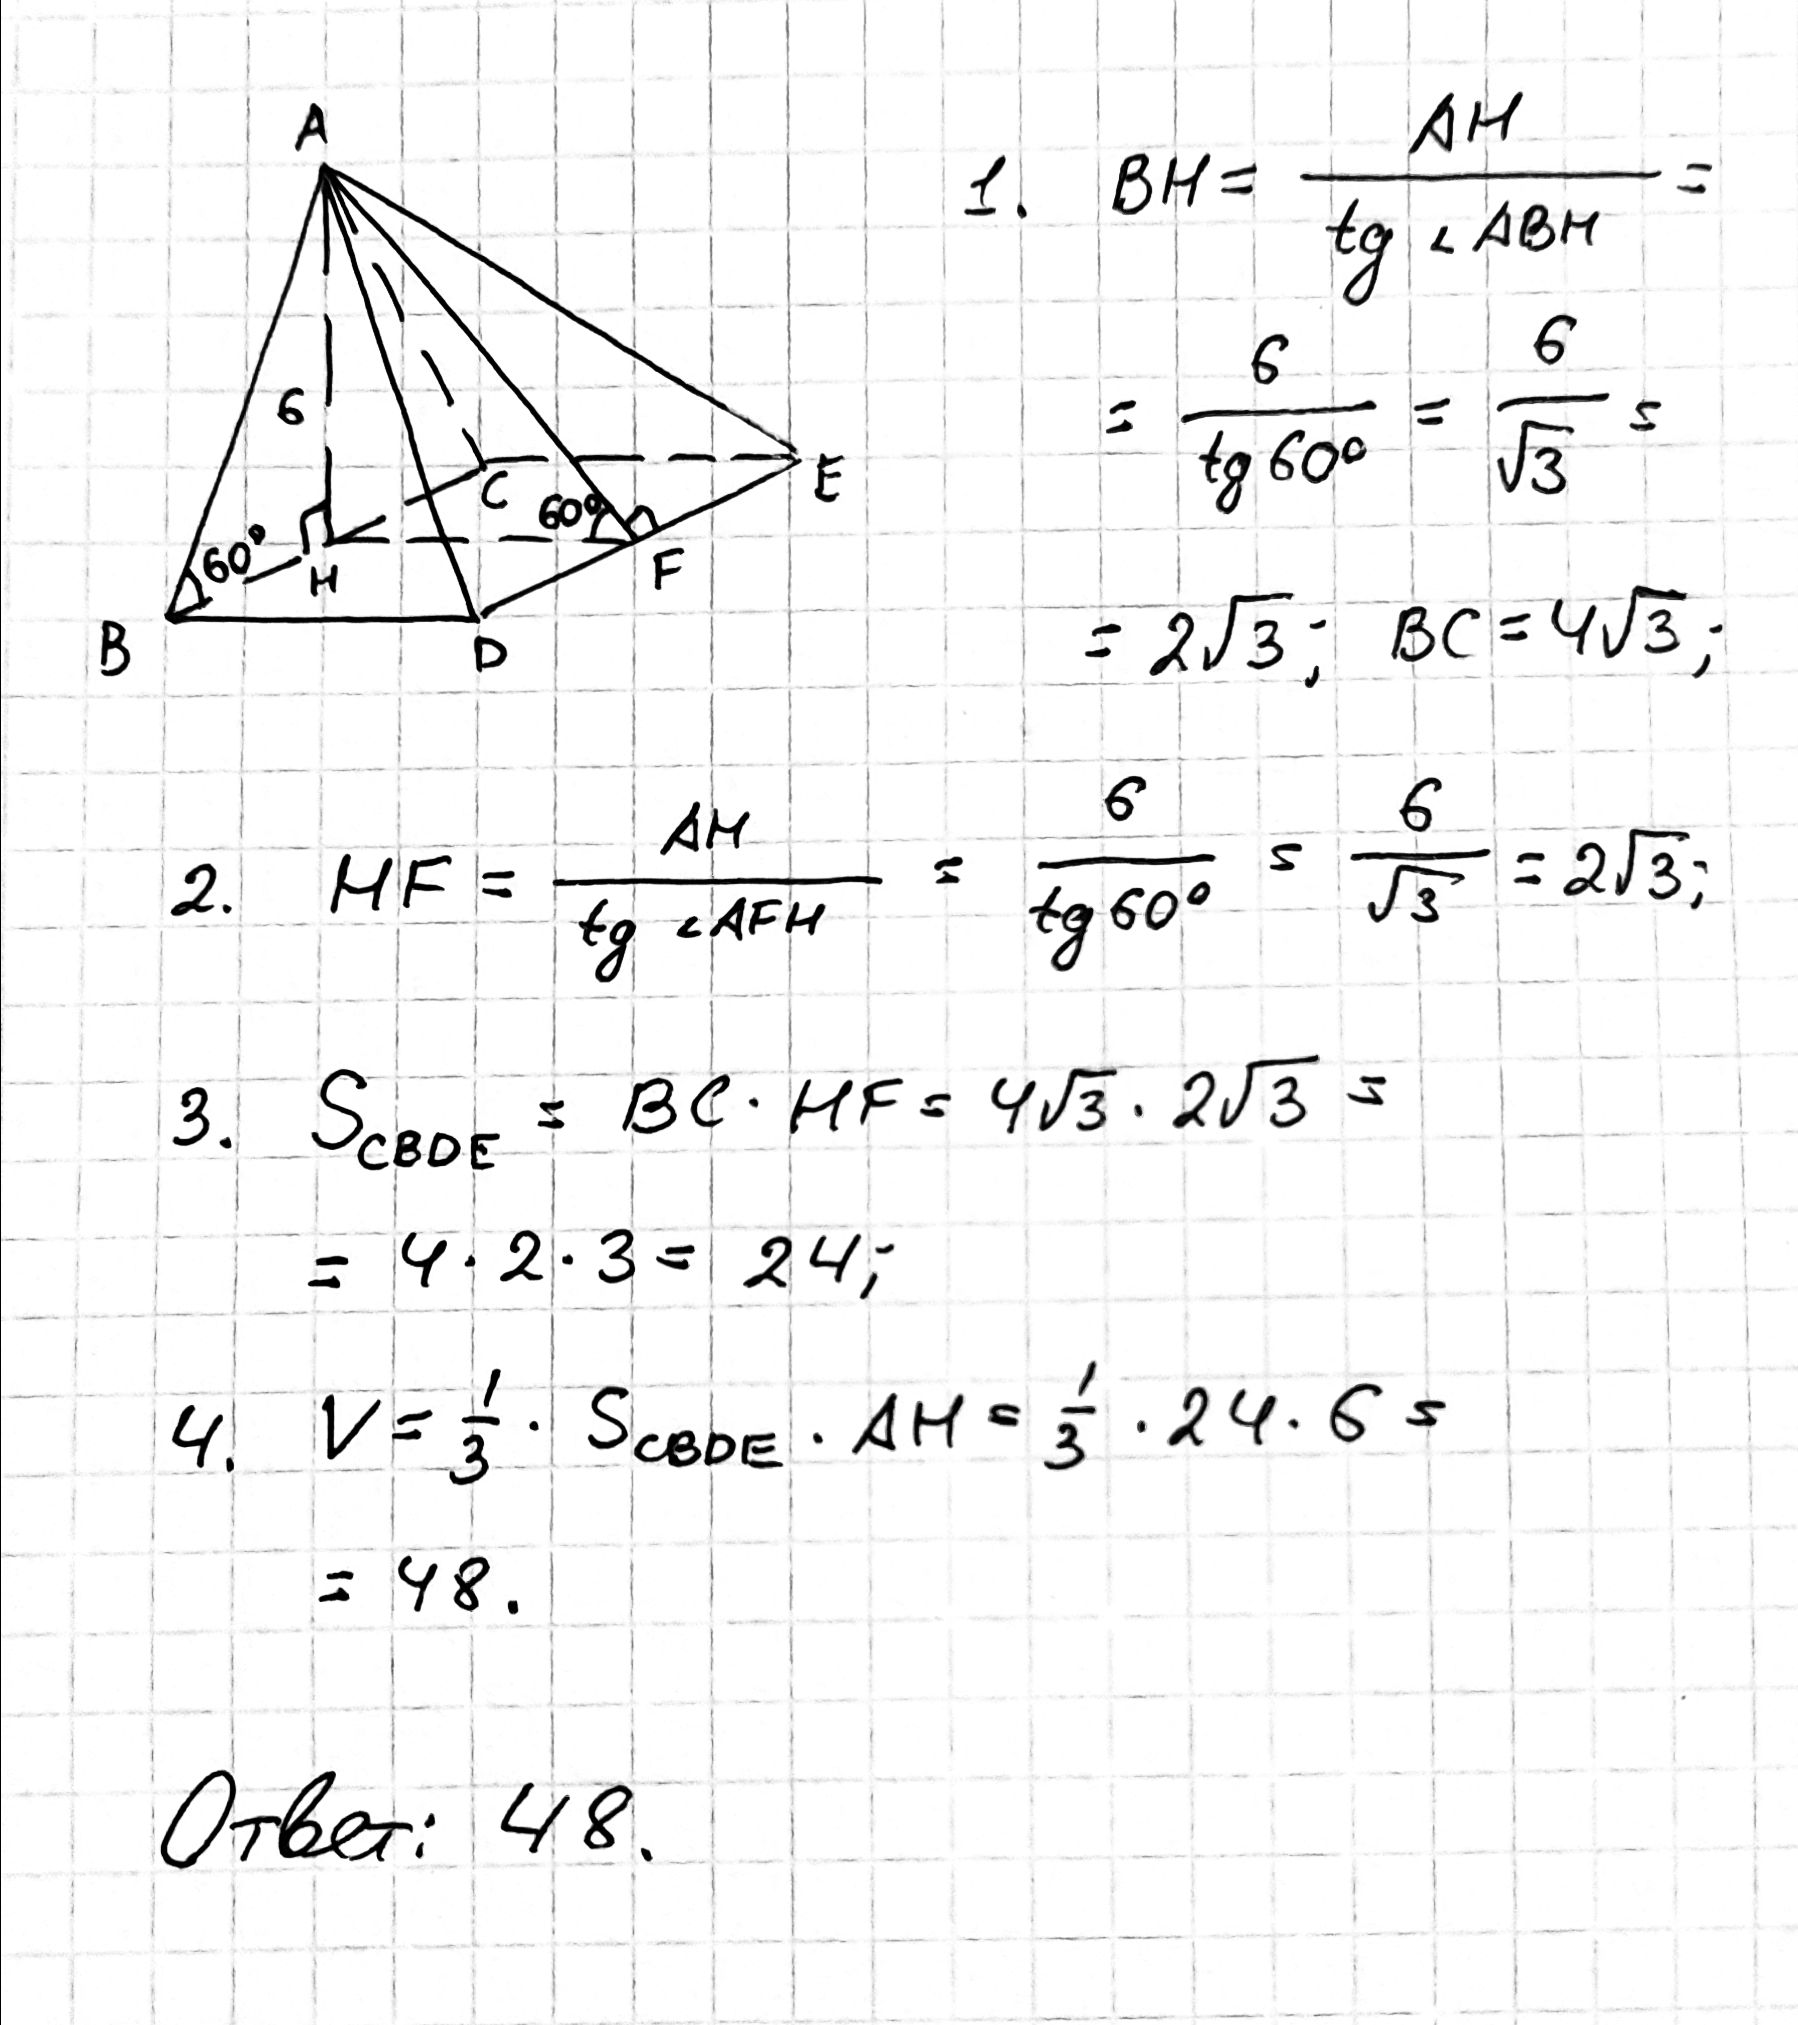 A
6
60°
H
C
60°
E
F
B
D
1. BH = AH / tg ∠ABH =
= 6 / tg 60° = 6 / √3 =
= 2√3; BC = 4√3;
2. HF = AH / tg ∠AFH = 6 / tg 60° = 6 / √3 = 2√3;
3. S_CBDE = BC · HF = 4√3 · 2√3 =
= 4 · 2 · 3 = 24;
4. V = 1/3 · S_CBDE · AH = 1/3 · 24 · 6 =
= 48.
Ответ: 48.